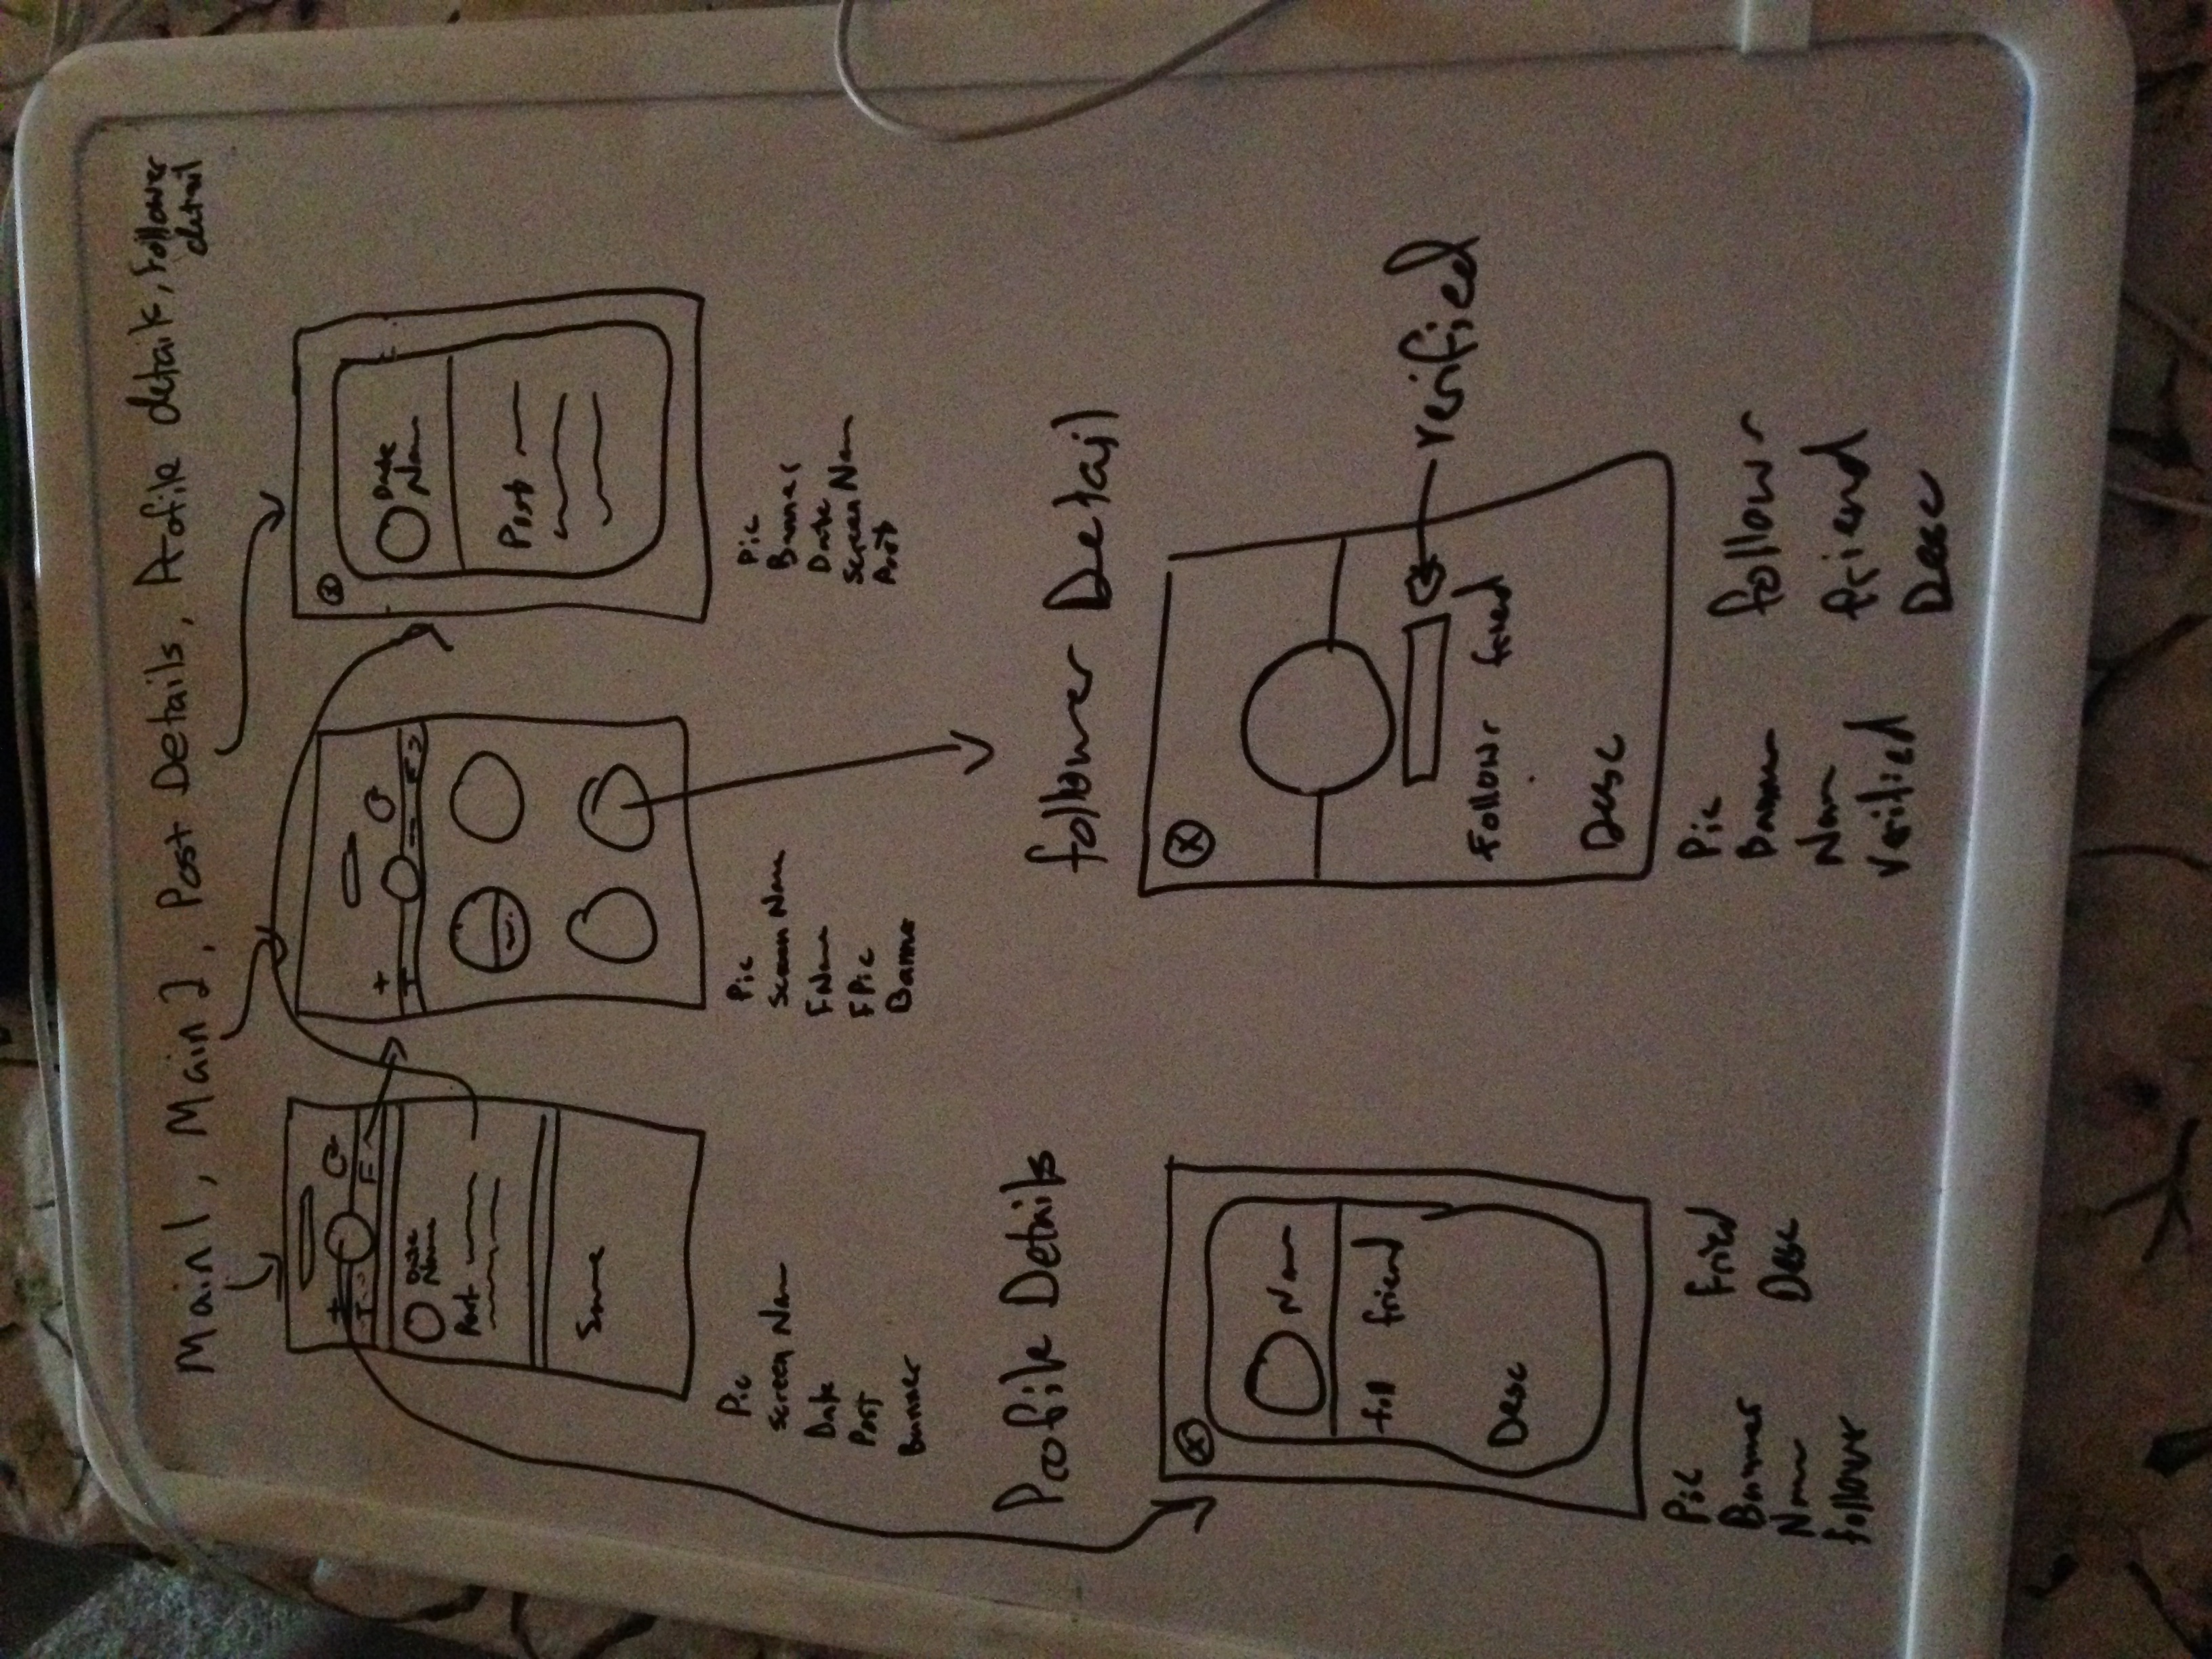 Main 1, Main 2, Post Details, Profile details, Follower
detail
+
T
F
Date
Name
Post
Same
+
T
Date
Name
Post
Pic
Screen Name
Date
Post
Banner
Pic
Screen Name
FName
FPic
Banner
Pic
Banner
Date
Screen Name
Post
Profile Details
X
Name
foll friend
Desc
Pic
Banner
Name
follower
Fried
Desc
follower Detail
X
verified
Followr friend
Desc
Pic
Banner
Nam
Verified
followr
friend
Desc